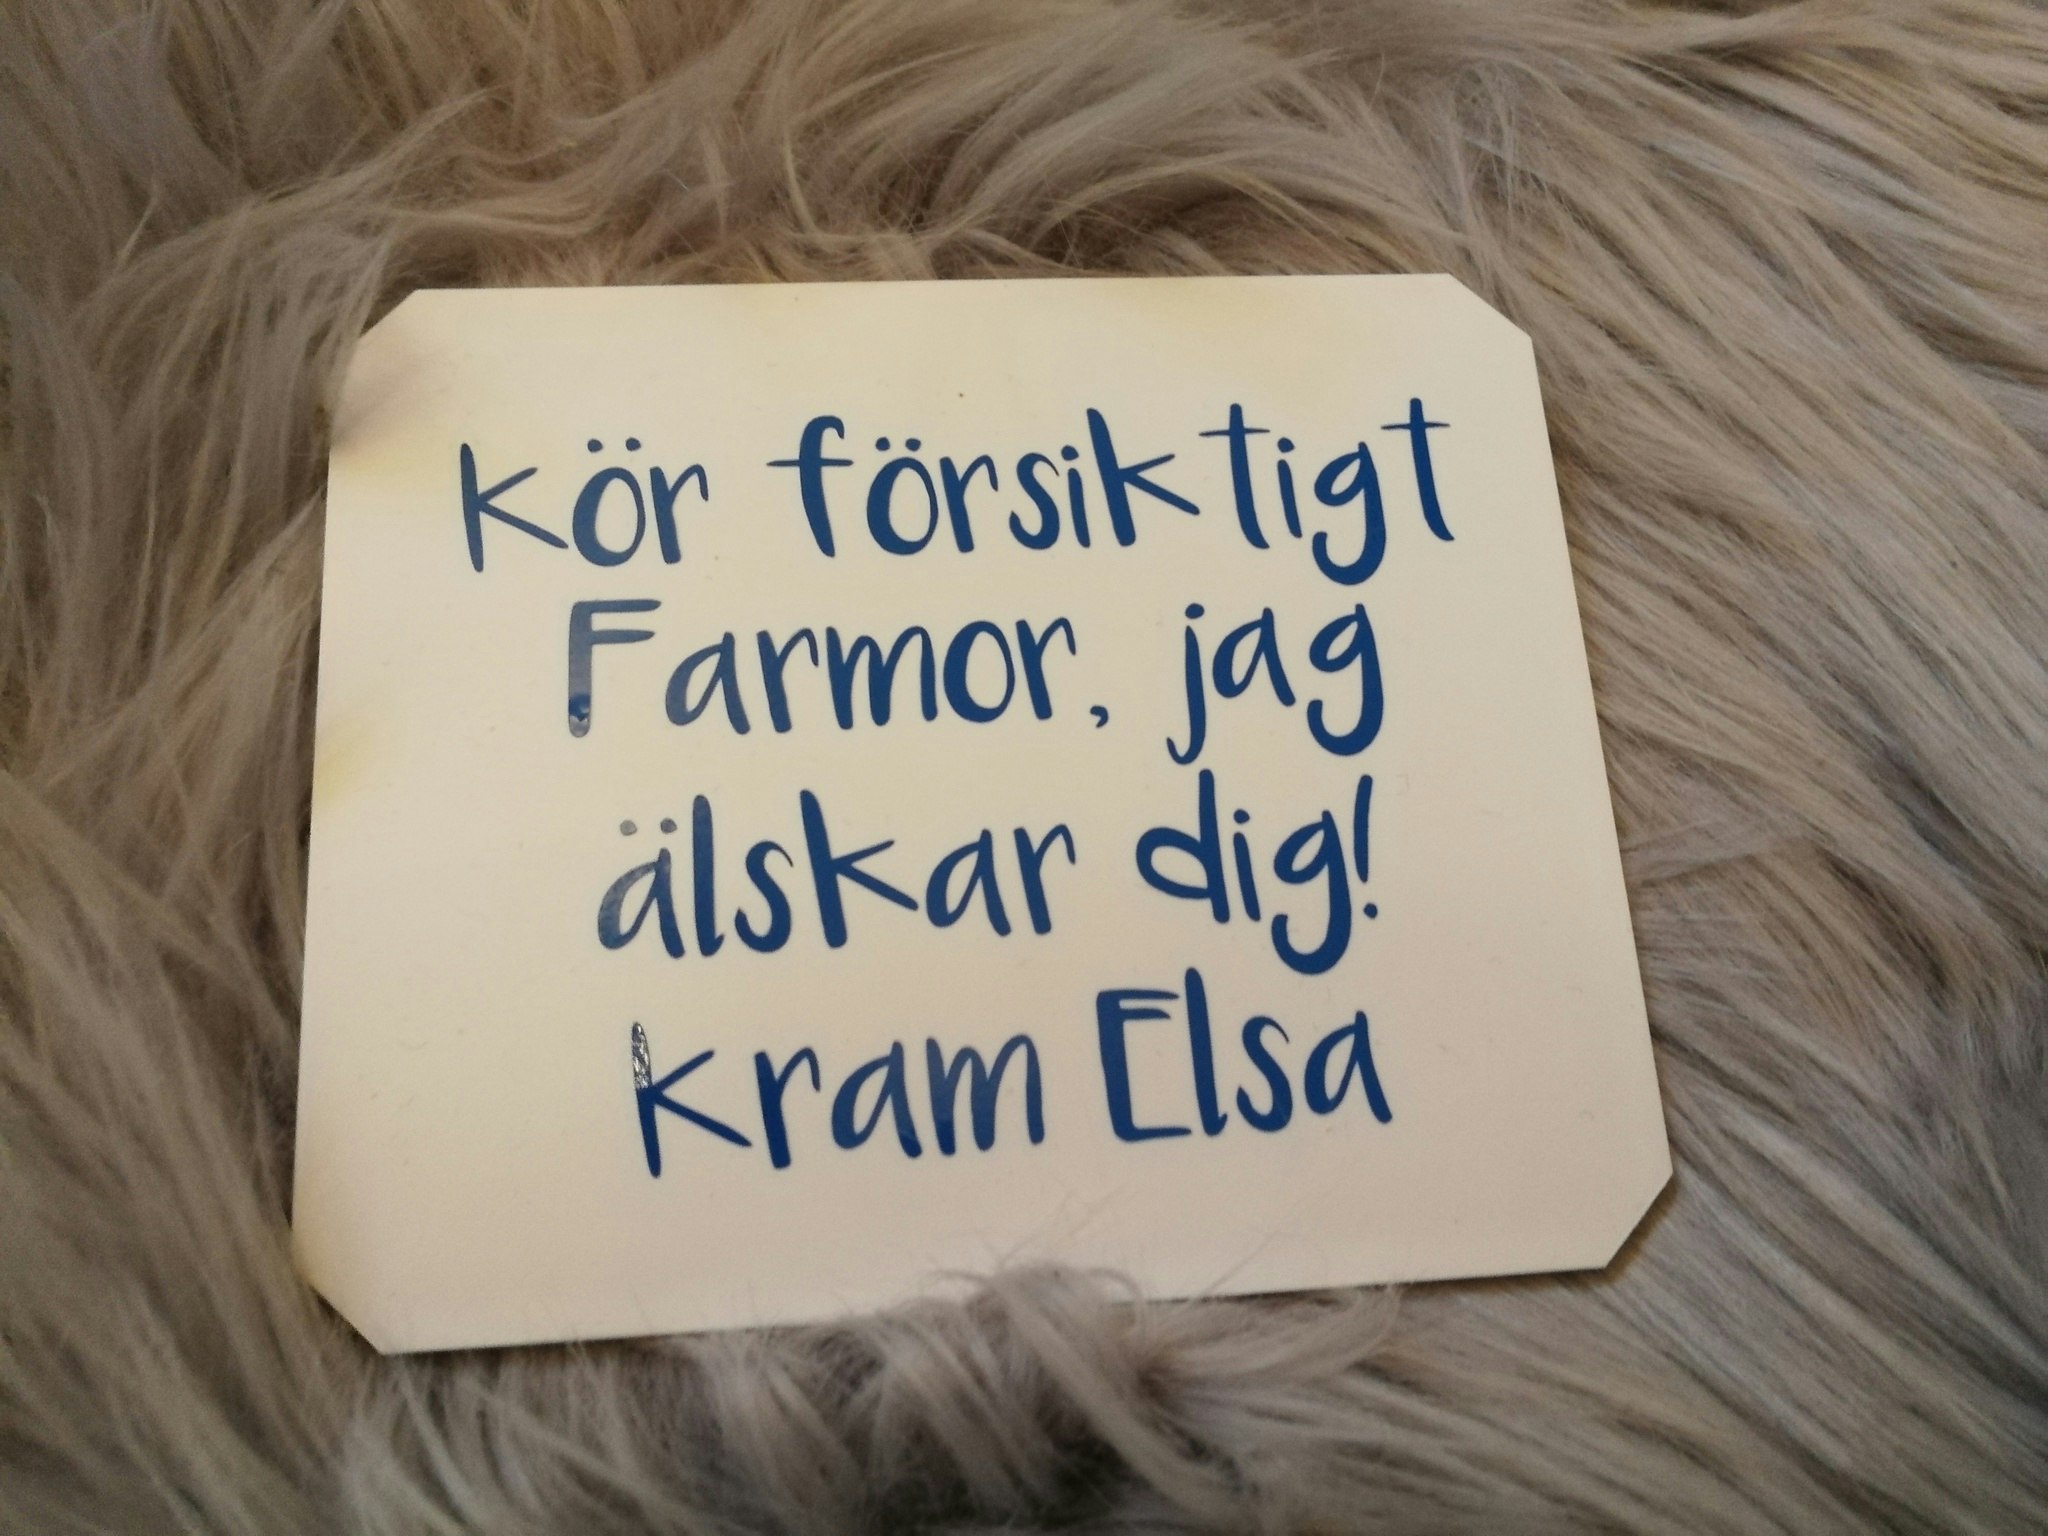 kör försiktigt
Farmor, jag
älskar dig!
kram Elsa